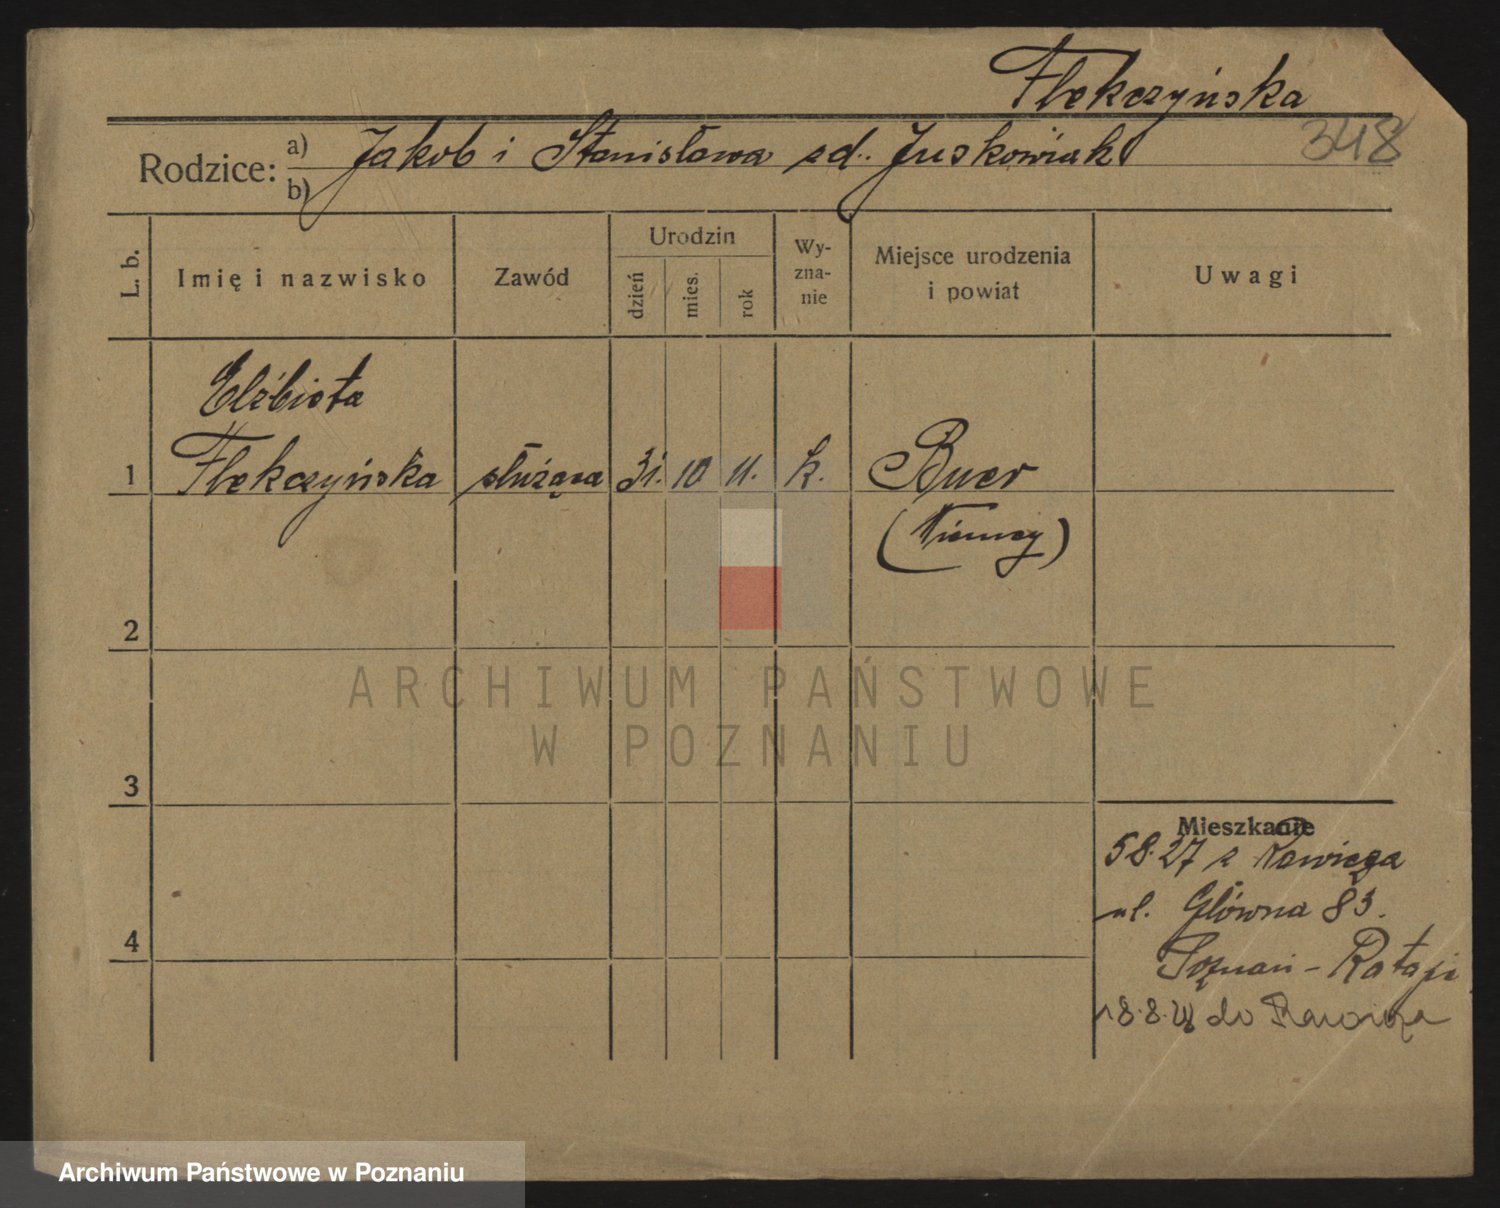 Flekczyńska
348
Rodzice: a) Jakob i Stanisława zd. Juskowiak
b)
L. b.
Imię i nazwisko
Zawód
Urodzin
dzień
mies.
rok
Wy-
zna-
nie
Miejsce urodzenia
i powiat
Uwagi
Elżbieta
1 Flekczyńska służąca 31. 10 11. k. Buer
(Niemcy)
2
ARCHIWUM PAŃSTWOWE
W POZNANIU
3
Mieszkanie
5 8. 27 z Rawicza
ul. Główna 83.
4
Poznań - Rataje
18. 8. 28 do Rawicza
Archiwum Państwowe w Poznaniu